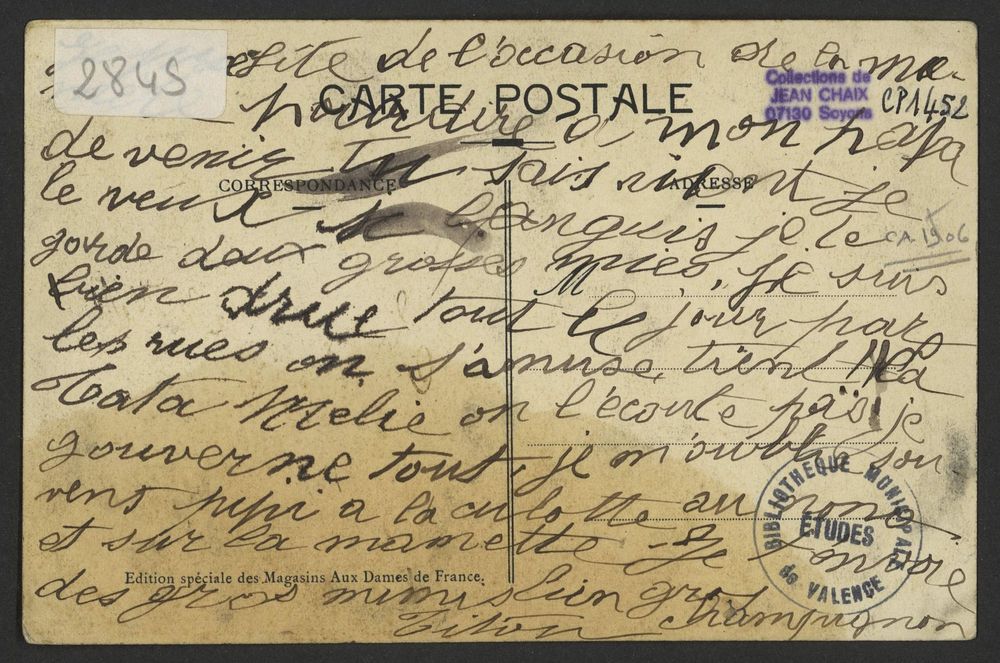 2845
de l'occasion de la
CARTE POSTALE
Collections de
JEAN CHAIX
07130 Soyons
CP1452
à mon papa
de venir Tu sais
CORRESPONDANCE
ADRESSE
le veux languis je te
CA 1906
garde deux grosses mies, je suis
M
bien drue tout le jour par
les rues on s'amuse, tient
tata Melie on l'écoute pas, je
gouverne tout, je m'oublie sou
vent pipi à la culotte au
et sur la mamette Je t'envoie
Edition spéciale des Magasins Aux Dames de France.
des gros mimis bien gros
Titon champignon
BIBLIOTHEQUE MUNICIPALE
ÉTUDES
de VALENCE